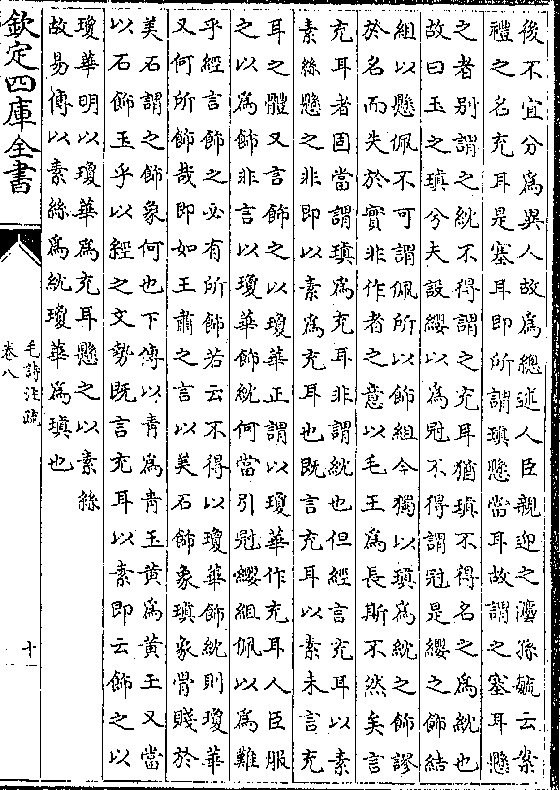 後不宜分為異人故為總述人臣親迎之禮孫毓云案
禮之名充耳是塞耳即所謂瑱懸當耳故謂之塞耳懸
之者别謂之紞不得謂之充耳猶瑱不得名之為紞也
故曰玉之瑱兮夫設纓以為冠不得謂冠是纓之飾結
組以懸佩不可謂佩所以飾組今獨以瑱為紞之飾謬
於名而失於實非作者之意以毛王為長斯不然矣言
充耳者固當謂瑱為充耳非謂紞也但經言充耳以素
素絲懸之非即以素為充耳也既言充耳以素未言充
耳之體又言飾之以瓊華正謂以瓊華作充耳人臣服
之以為飾非言以瓊華飾紞何當引冠纓組佩以為難
乎經言飾之必有所飾若云不得以瓊華飾紞則瓊華
又何所飾哉即如王肅之言以美石飾象瑱象骨賤於
美石謂之飾象何也下傳以青為青玉黄為黄玉又當
以石飾玉乎以經之文勢既言充耳以素即云飾之以
瓊華明以瓊華為充耳懸之以素絲
故易傳以素絲為紞瓊華為瑱也
欽定四庫全書
毛詩注疏
卷八
十